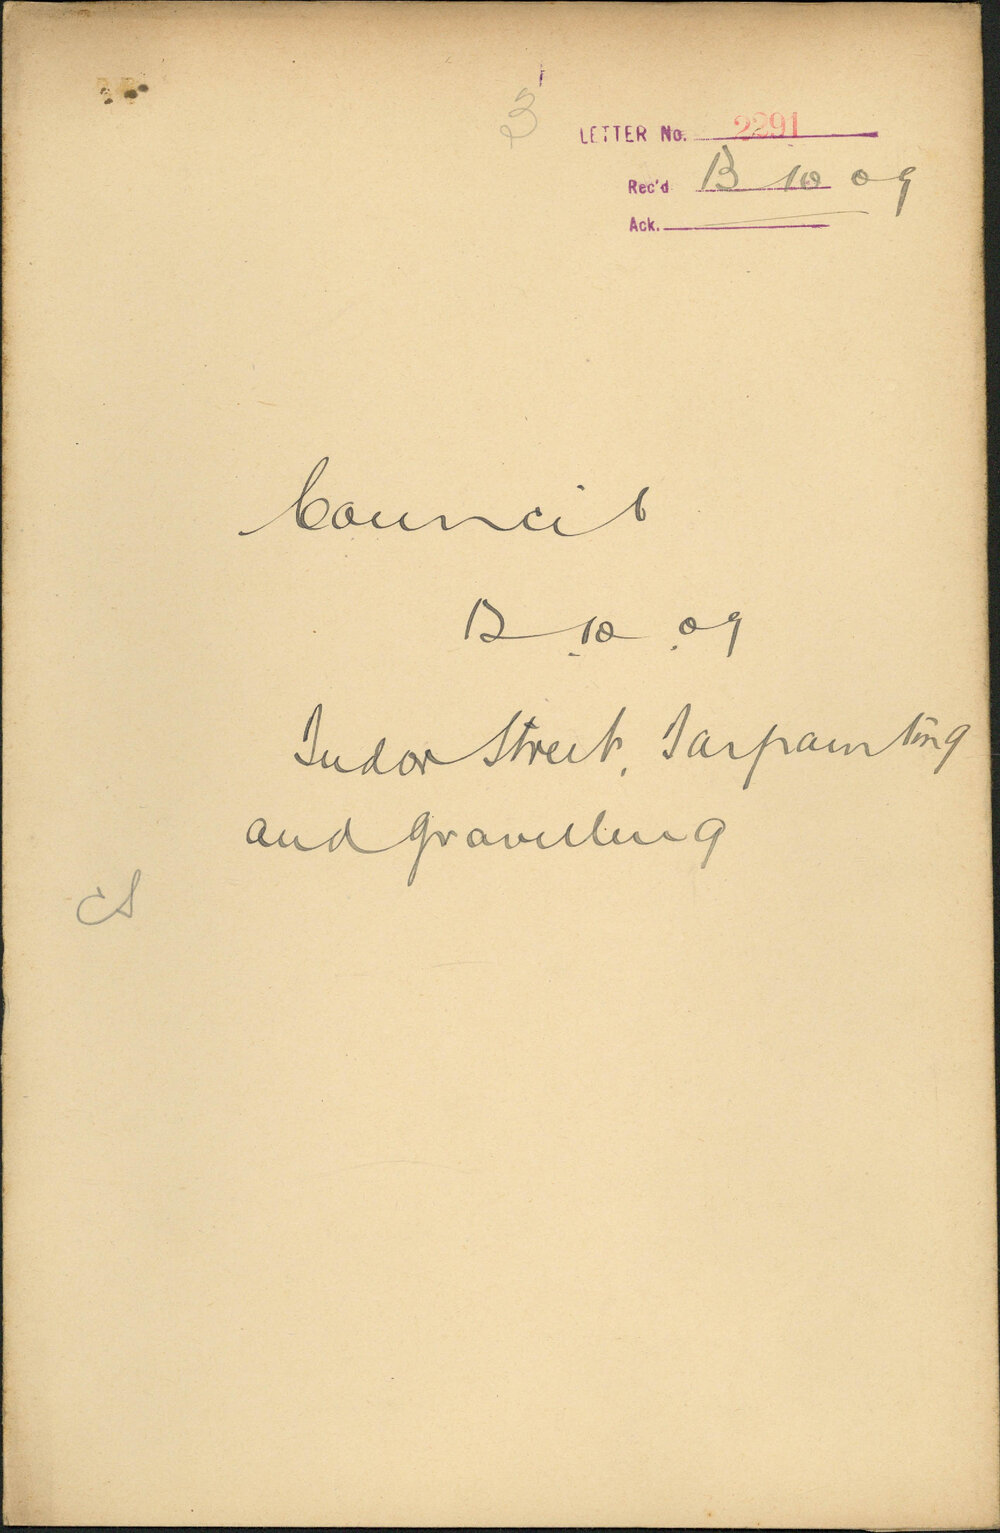 3
LETTER No. 2291
Rec'd 13 10 09
Ack.
Council
13 10 09
Tudor Street, Tarpainting
and gravelling